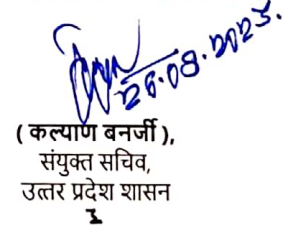 26.08.2023.
( कल्याण बनर्जी ),
संयुक्त सचिव,
उत्तर प्रदेश शासन